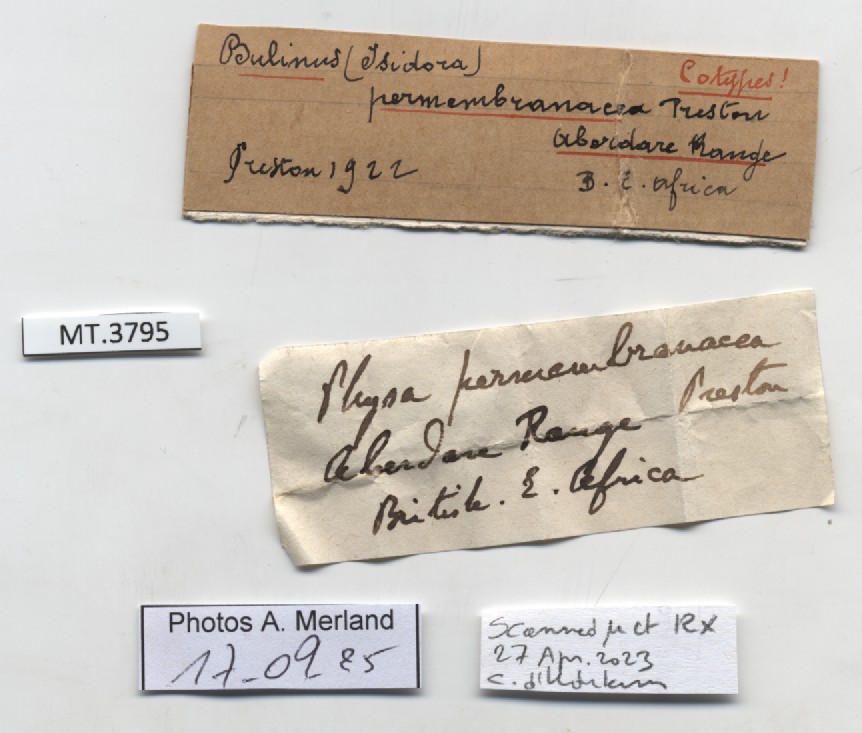 Bulinus (Isidora)
Cotypes!
permembranacea Preston
Aberdare Range
Preston 1922
B. E. Africa
MT.3795
Physa permembranacea
Preston
Aberdare Range
British. E. Africa
Photos A. Merland
17-09 25
Scanned µ ct RX
27 Apr. 2023
C.